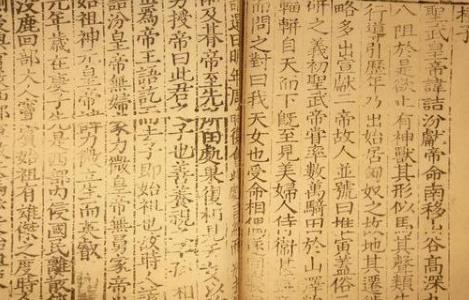 聖武皇帝諱詰汾獻帝命南移山谷高深
八阻於是欲止有神獸其形似馬其聲類
行導引歷年乃出始居匈奴之故地其遷
略多出宣獻二帝故人並號曰推寅蓋俗
研之義初聖武帝嘗率數萬騎田於山澤
輜軿自天而下既至見美婦人侍衛甚
而問之對曰我天女也受命相
請還曰明年周時復
及期帝至先所田處果復相見天女以
授帝曰此君之子也善養視之子孫相
世為帝王語訖而去子即始祖也故時人
詰汾皇帝無婦家力微皇帝無舅家帝
始祖神元皇帝諱力微立生而英叡
元年歲在庚子先是西部內侵國民離散
沒鹿回部大人竇賓始祖有雄傑之度時人